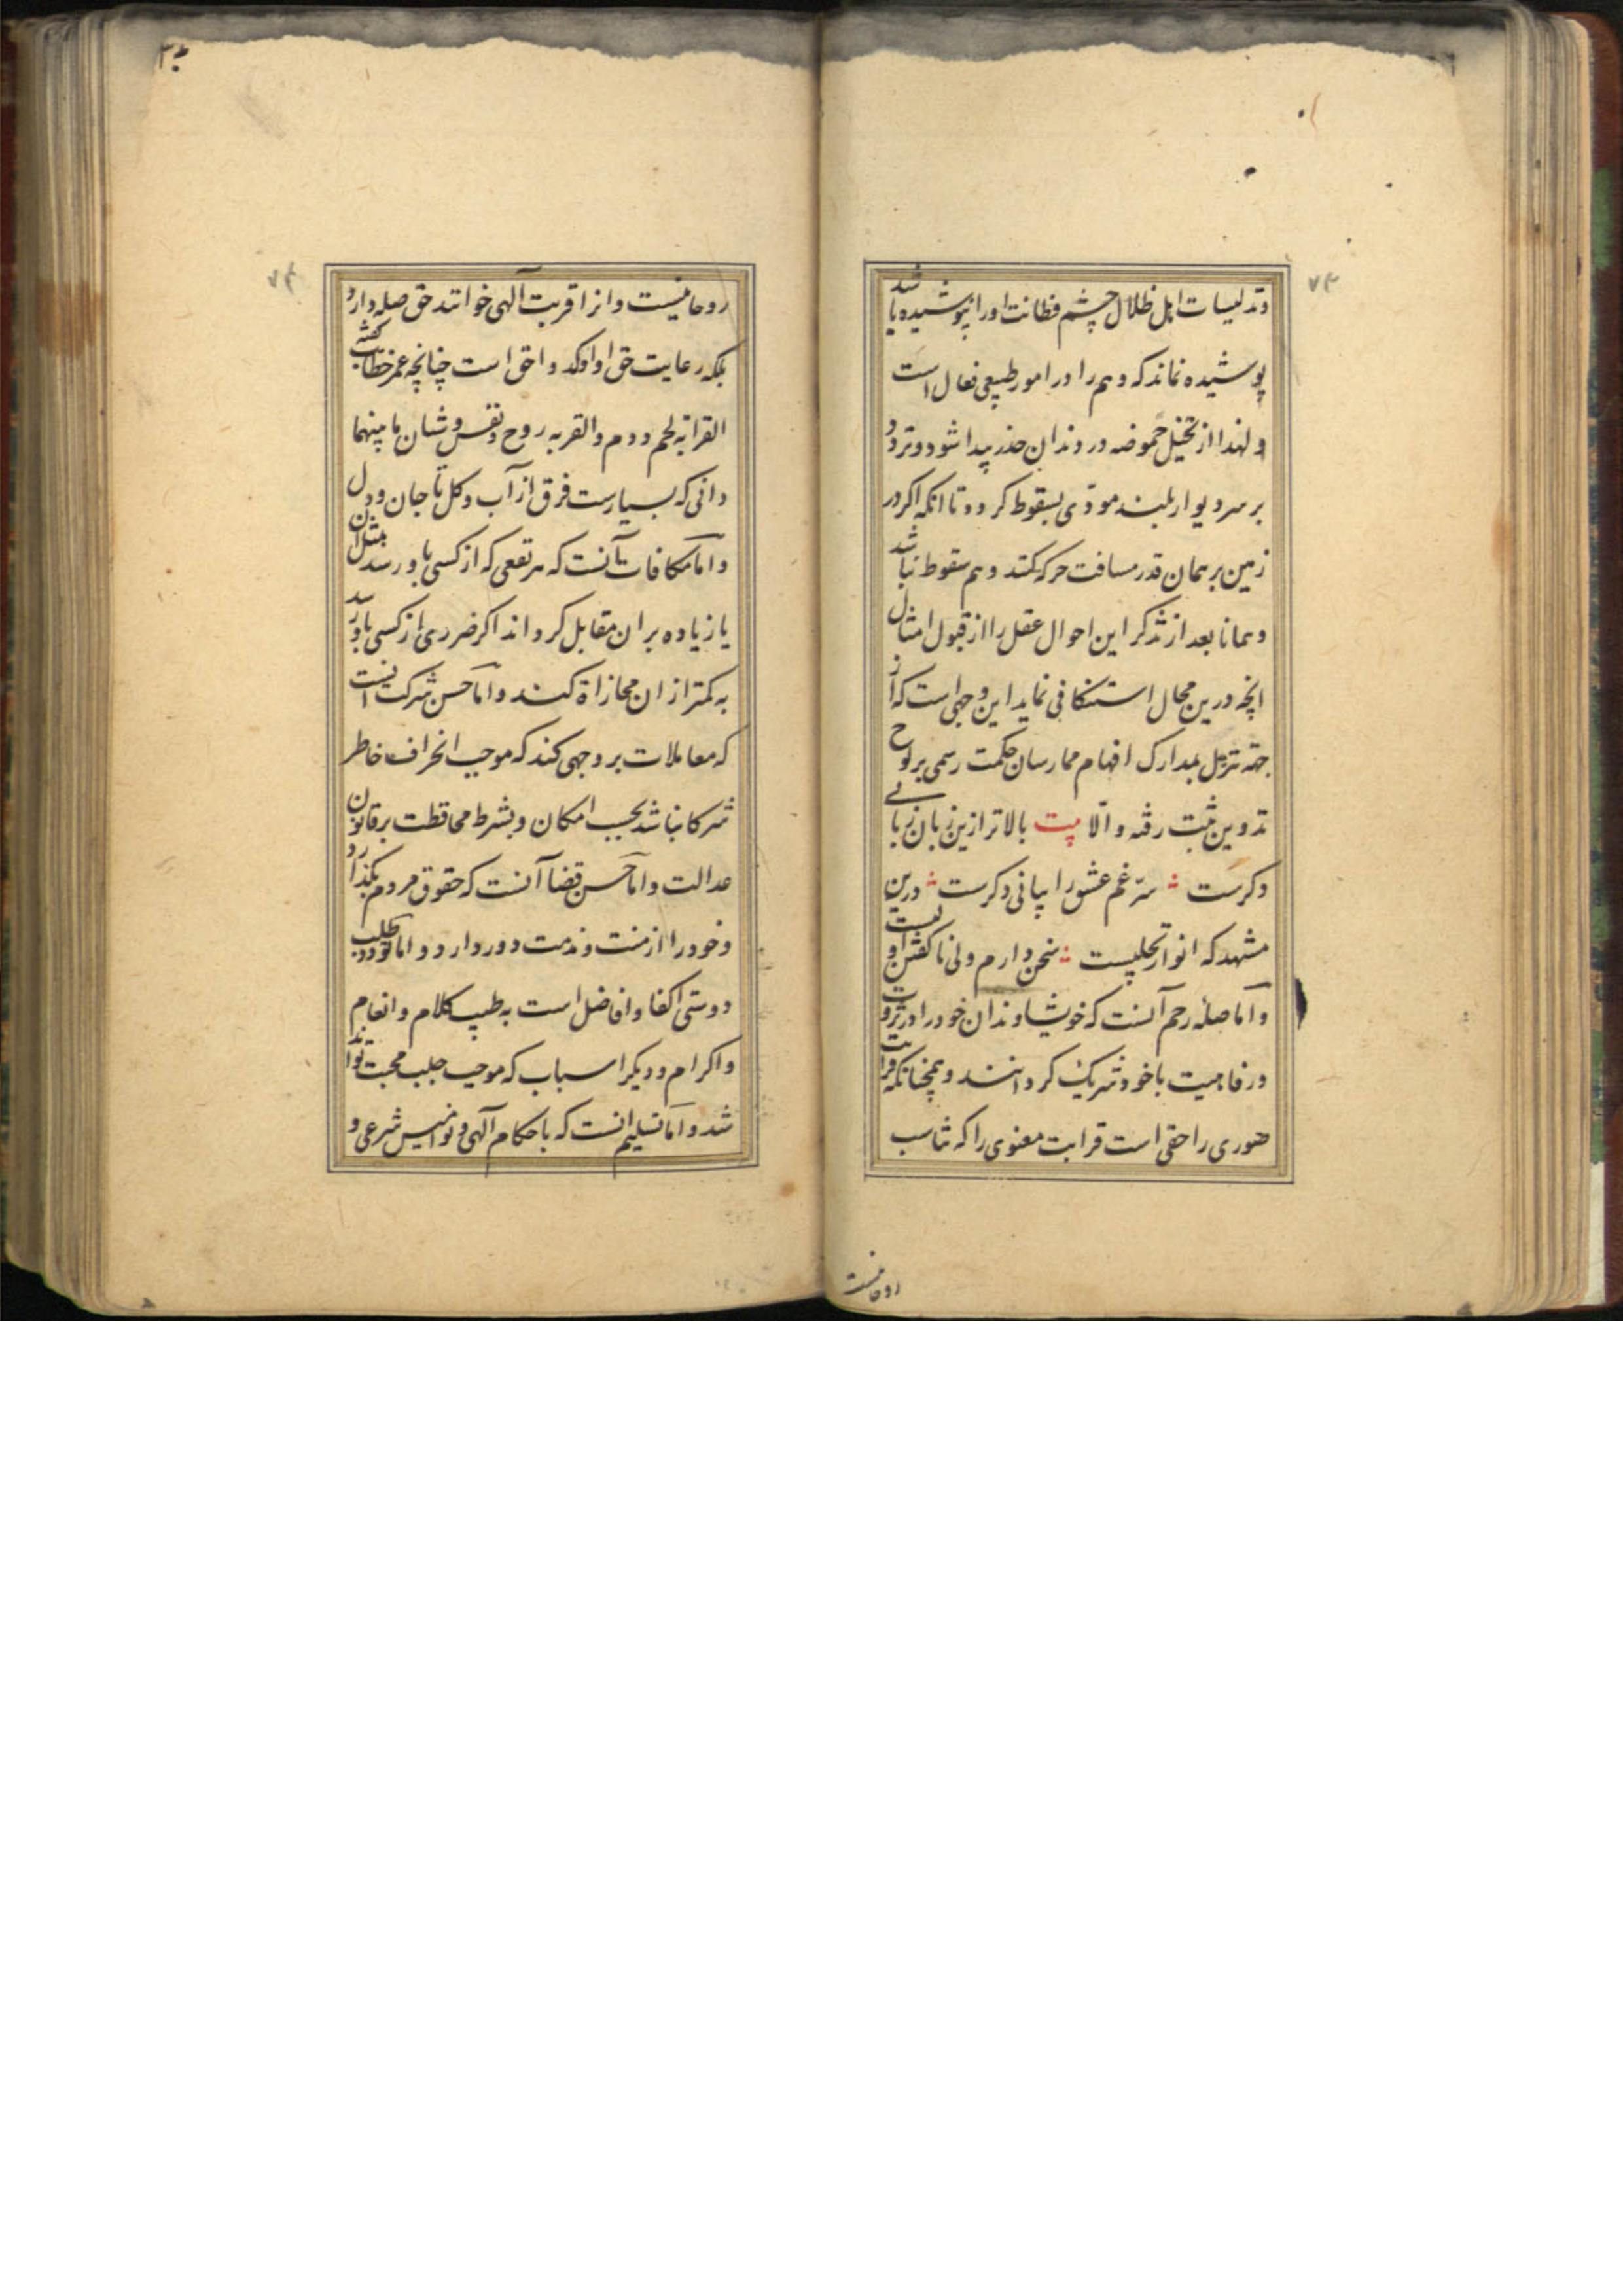 ۷۳
وتدلیسات اهل ظلال چشم فطانت اورا نپوشیده باشد
پوشیده نماند که وهم را در امور طبیعی فعال است
ولهذا از تخیل حموضه در دندان خدر پیدا شود و تردد
بر سر دیوار بلند مودی بسقوط کردد تا انکه اکر در
زمین بر همان قدر مسافت حرکه کنند وهم سقوط نباشد
وهمانا بعد از تذکر این احوال عقل را از قبول امثال
انچه درین مجال استنکافی نماید این وجهی است که از
جهة تنزل بمدارک افهام ممارسان حکمت رسمی بر لوح
تدوین ثبت رفته والا بیت بالاتر ازین زبان زبانی
دکرست سرّ غم عشق را بیانی دکرست درین
مشهد که انوار تجلیست سخن دارم ولی نا کفتن اولیست
وامّا صلهٔ رحم آنست که خویشاوندان خود را در ثروت
ورفاهیت با خود شریک کردانند وهمچنانکه قرابت
صوری را حقی است قرابت معنوی را که تناسب
روحانیست
۷۴
روحانیست وانرا قربت آلهی خوانند حق صله دارد
بلکه رعایت حق او اوکد و احق است چنانچه عمر خطاب کفته
القرابة لحم ودم والقربه روح ونفس وشتان ما بینهما
دانی که بسیارست فرق از آب وکل تا جان ودل
وامّا مکافات آنست که هر نفعی که از کسی باو رسد بمثل ان
یا زیاده بر ان مقابل کرداند اکر ضرری از کسی باو رسد
به کمتر از ان مجازاة کند وامّا حسن شرکت انست
که معاملات بر وجهی کند که موجب انحراف خاطر
شرکا نباشد بحسب امکان وبشرط محافظت بر قانون
عدالت وامّا حسن قضا آنست که حقوق مردم بکذارد
وخود را از منت و ندمت دور دارد و اما تودد طلب
دوستی اکفا و افاضل است به طیب کلام و انعام
واکرام و دیکر اسباب که موجب جلب محبت تواند
شد و امّا تسلیم انست که باحکام آلهی ونوامیس شرعی و